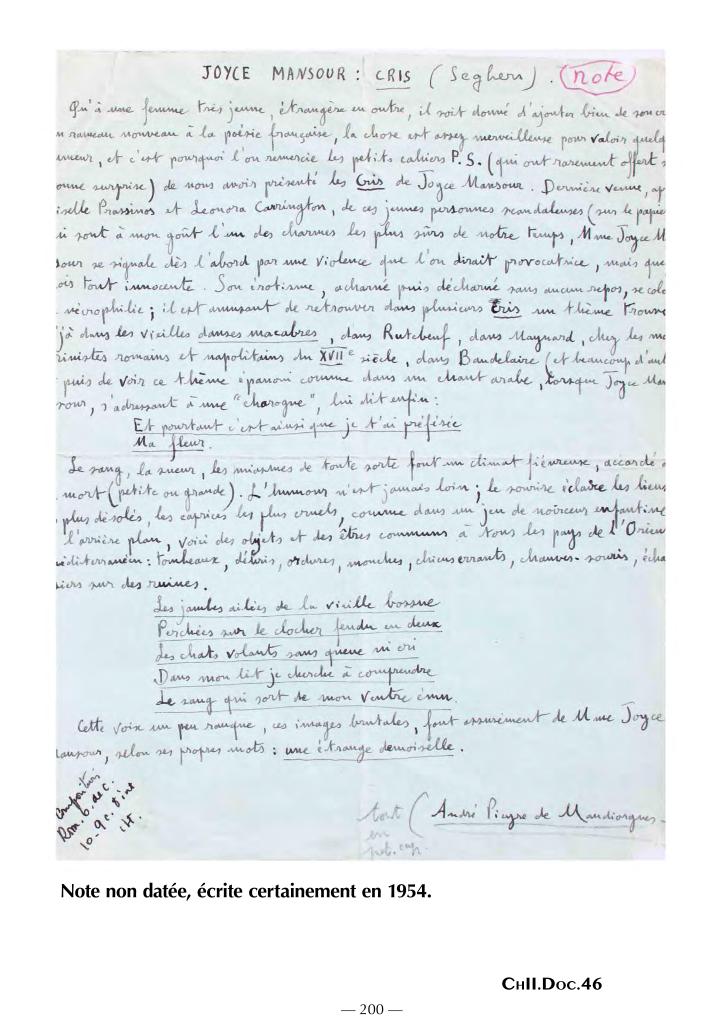 JOYCE MANSOUR : CRIS (Seghers). note
Qu'à une femme très jeune, étrangère en outre, il soit donné d'ajouter bien de son cr
n rameau nouveau à la poésie française, la chose est assez merveilleuse pour valoir quelq
umeur, et c'est pourquoi l'on remercie les petits cahiers P.S. (qui ont rarement offert s
onne surprise) de nous avoir présenté les Cris de Joyce Mansour. Dernière venue, ap
iselle Prassinos et Leonora Carrington, de ces jeunes personnes scandaleuses (sur le papier
ui sont à mon goût l'un des charmes les plus sûrs de notre temps, Mme Joyce M
sour se signale dès l'abord par une violence que l'on dirait provocatrice, mais que
ois tout innocente. Son érotisme, acharné puis décharné sans aucun repos, se colo
nécrophilie ; il est amusant de retrouver dans plusieurs Cris un thème trouvé
jà dans les vieilles danses macabres, dans Rutebeuf, dans Maynard, chez les ma
rinistes romains et napolitains du XVIIe siècle, dans Baudelaire (et beaucoup d'aut
puis de voir ce thème épanoui comme dans un chant arabe, lorsque Joyce Man
sour, s'adressant à une "charogne", lui dit enfin :
Et pourtant c'est ainsi que je t'ai préférée
Ma fleur.
Le sang, la sueur, les miasmes de toute sorte font un climat fiévreuse, accordé à
mort (petite ou grande). L'humour n'est jamais loin ; le sourire éclaire les lieux
plus désolés, les caprices les plus cruels, comme dans un jeu de noirceur enfantine
l'arrière plan, voici des objets et des êtres communs à tous les pays de l'Orien
méditerranéen : tombeaux, débris, ordures, mouches, chiens errants, chauves-souris, écha
siers sur des ruines.
Les jambes ailées de la vieille bossue
Perchées sur le clocher fendu en deux
Les chats volants sans queue ni cri
Dans mon lit je cherche à comprendre
Le sang qui sort de mon ventre ému.
Cette voix un peu rauque, ces images brutales, font assurément de Mme Joyce
Mansour, selon ses propres mots : une étrange demoiselle.
Rom. b. de c.
tout ( André Pieyre de Mandiargues
en
pet. cap.
Note non datée, écrite certainement en 1954.
CHII.DOC.46
— 200 —